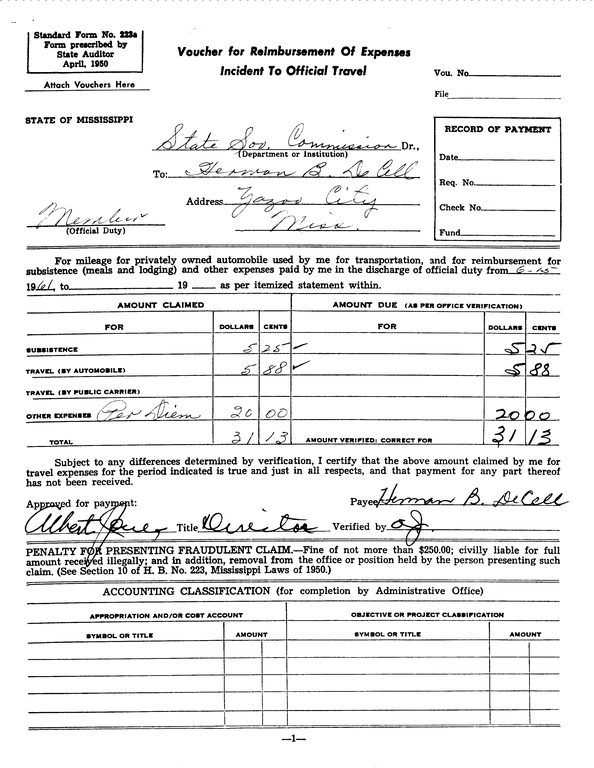 Standard Form No. 223a
Form prescribed by
State Auditor
April, 1950
Attach Vouchers Here
Voucher for Reimbursement Of Expenses
Incident To Official Travel
Vou. No.
File
STATE OF MISSISSIPPI
State Sov. Commission Dr.,
(Department or Institution)
To: Herman B. De Cell
Address Yazoo City
Miss.
Member
(Official Duty)
RECORD OF PAYMENT
Date
Req. No.
Check No.
Fund
For mileage for privately owned automobile used by me for transportation, and for reimbursement for
subsistence (meals and lodging) and other expenses paid by me in the discharge of official duty from 6-15
1961, to 19 as per itemized statement within.
AMOUNT CLAIMED AMOUNT DUE (AS PER OFFICE VERIFICATION)
FOR DOLLARS CENTS FOR DOLLARS CENTS
SUBSISTENCE 5 25 ✓ 5 25
TRAVEL (BY AUTOMOBILE) 5 88 ✓ 5 88
TRAVEL (BY PUBLIC CARRIER)
OTHER EXPENSES Per Diem 20 00 20 00
TOTAL 31 13 AMOUNT VERIFIED: CORRECT FOR 31 13
Subject to any differences determined by verification, I certify that the above amount claimed by me for
travel expenses for the period indicated is true and just in all respects, and that payment for any part thereof
has not been received.
Approved for payment: Payee Herman B. DeCell
Albert Jones Title Director Verified by
PENALTY FOR PRESENTING FRAUDULENT CLAIM.—Fine of not more than $250.00; civilly liable for full
amount received illegally; and in addition, removal from the office or position held by the person presenting such
claim. (See Section 10 of H. B. No. 223, Mississippi Laws of 1950.)
ACCOUNTING CLASSIFICATION (for completion by Administrative Office)
APPROPRIATION AND/OR COST ACCOUNT OBJECTIVE OR PROJECT CLASSIFICATION
SYMBOL OR TITLE AMOUNT SYMBOL OR TITLE AMOUNT
—1—